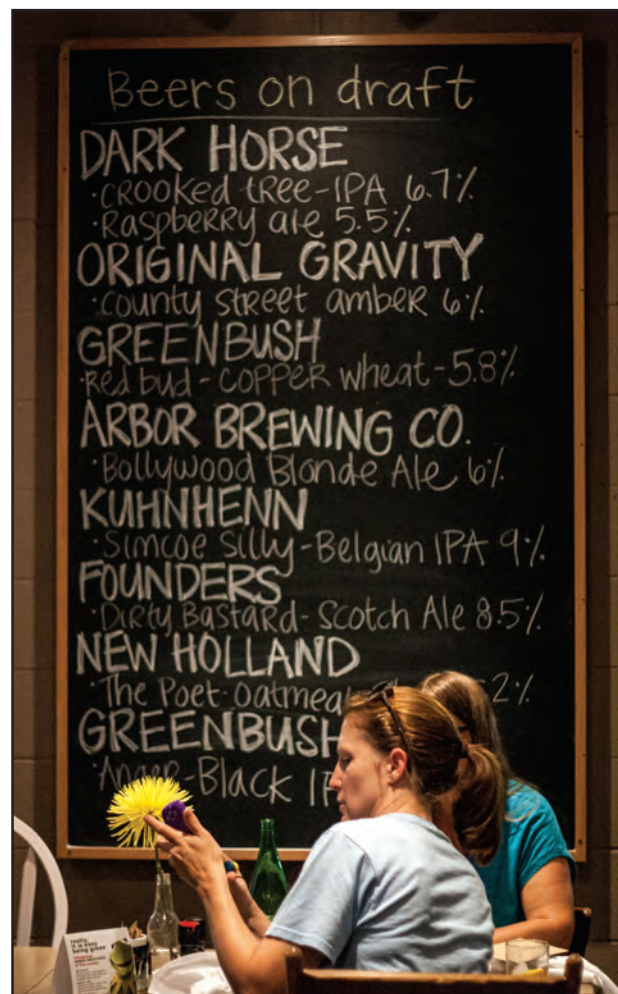 Beers on draft
DARK HORSE
·CROOKED tree-IPA 6.7%
·Raspberry ale 5.5%
ORIGINAL GRAVITY
·county street amber 6%
GREENBUSH
·Red bud - COPPER wheat-5.8%
ARBOR BREWING CO.
·Bollywood Blonde Ale 6%
KUHNHENN
·Simcoe Silly-Belgian IPA 9%
FOUNDERS
·Dirty Bastard- Scotch Ale 8.5%
NEW HOLLAND
·The Poet-oatmea 2%
GREENBUSH
·Anger-Black IP
really,
it is easy
being green